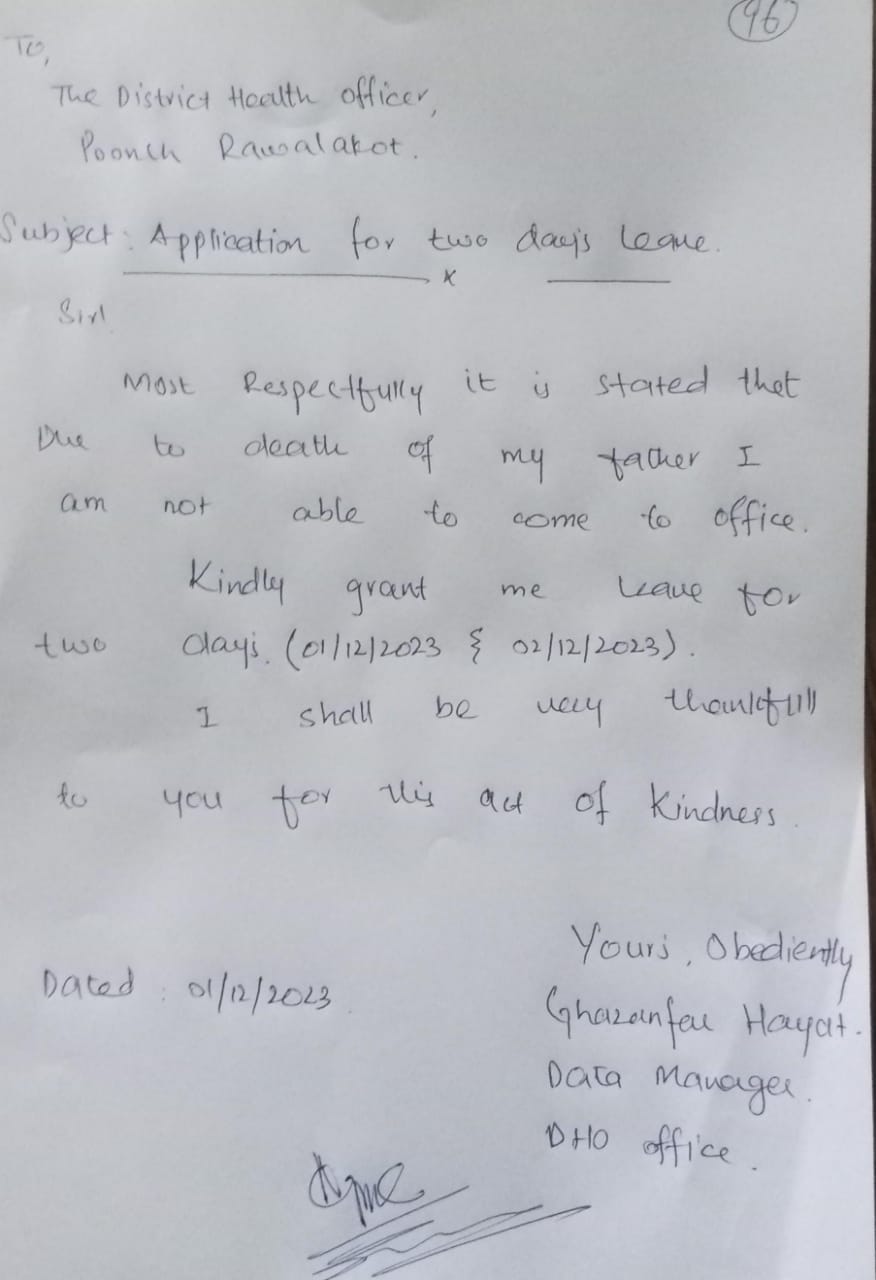 96
To,
The District Health officer,
Poonch Rawalakot.
Subject: Application for two days leave.
x
Sir!
Most Respectfully it is stated that
Due to death of my father I
am not able to come to office.
Kindly grant me leave for
two days. (01/12/2023 & 02/12/2023).
I shall be very thankfull
to you for this act of kindness.
Yours, Obediently
Dated : 01/12/2023
Ghazanfar Hayat.
Data Manager.
DHO office.